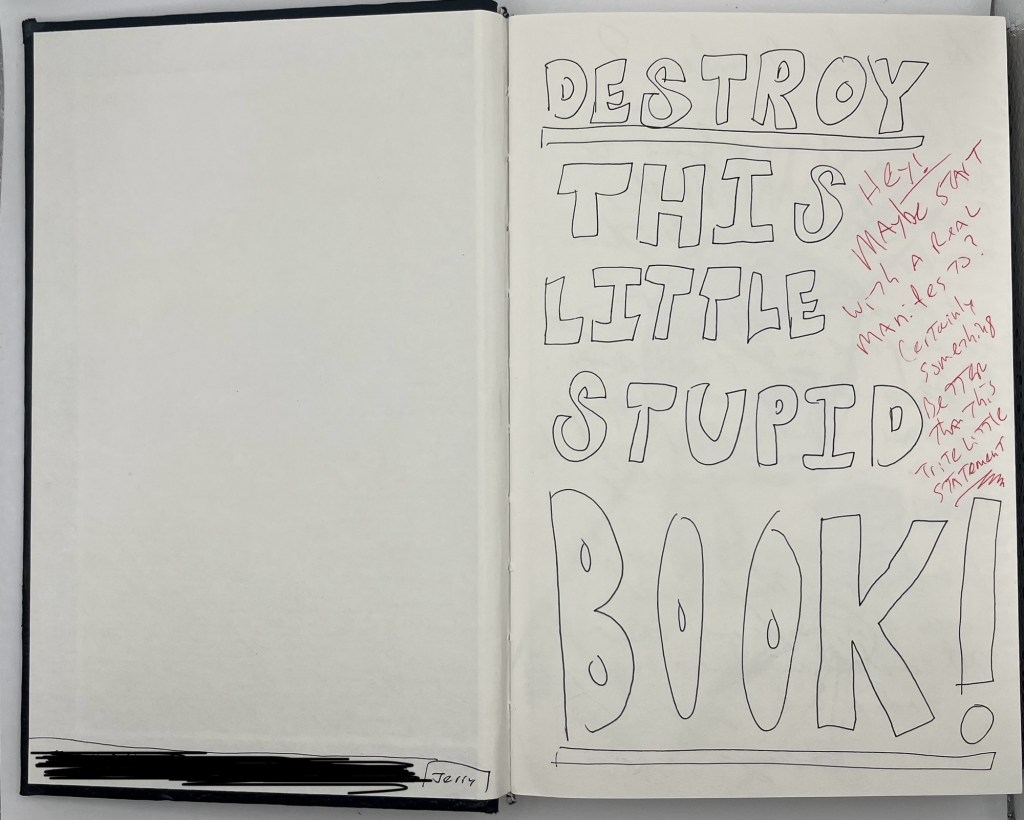 Jerry
DESTROY
THIS
LITTLE
STUPID
BOOK!
HEY!
MAYBE START
WITH A REAL
MANIFESTO?
Certainly
Something
BETTER
Than This
Trite Little
STATEMENT